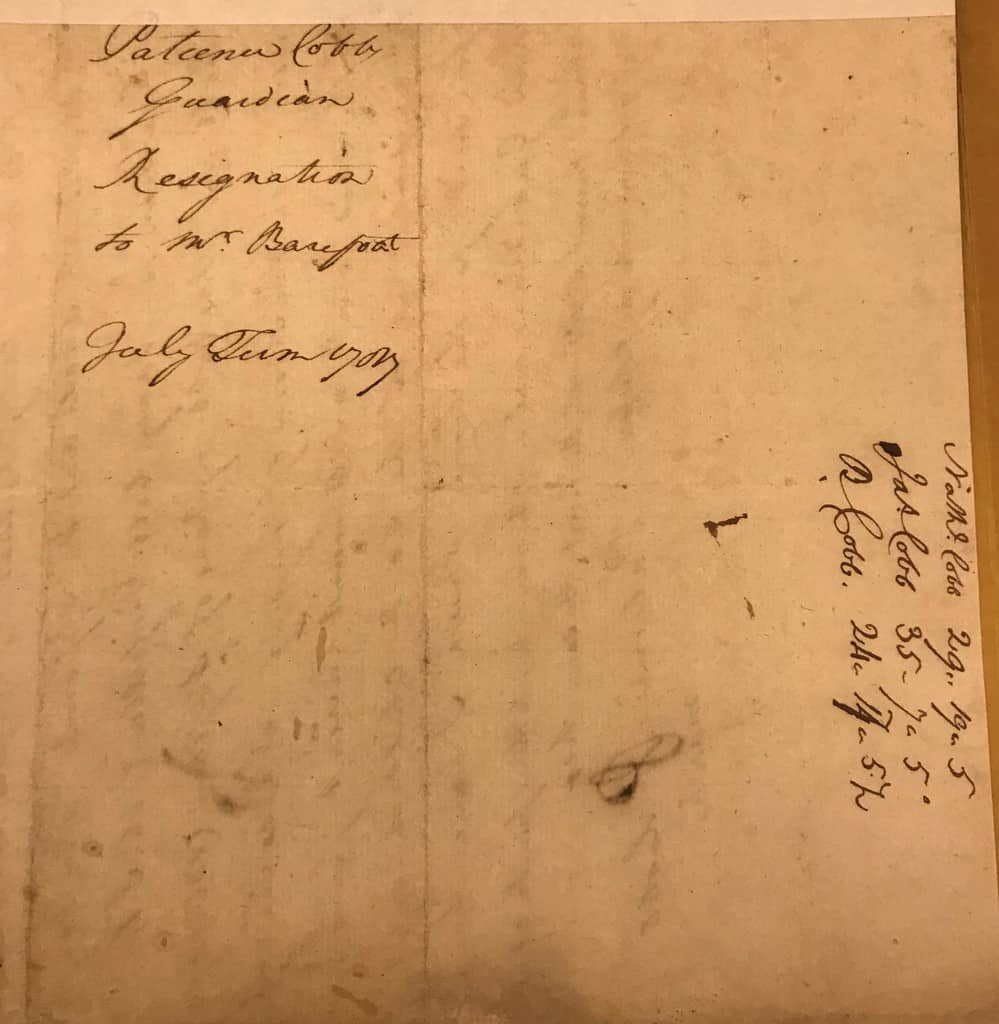 Patience Cobb
Guardian
Resignation
to Mr. Barefoot
July Term
Nathl. Cobb 29 " 19 " 5
Jas. Cobb 35 " 7 " 5
B Cobb. 24 " 17 " 5½